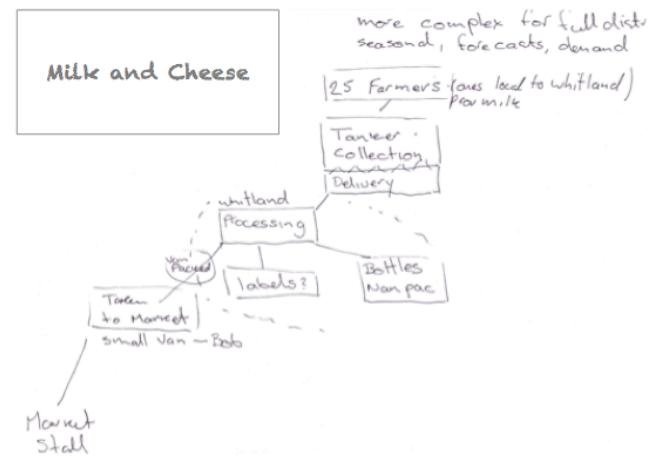 more complex for full distr
seasonal, forecasts, demand
Milk and Cheese
25 Farmers (ones local to whitland)
milk
Tanker
Collection
Delivery
whitland
Processing
Van
Packed
labels?
Bottles
Nanpac
Taken
to Market
small Van - Bob
Market
Stall